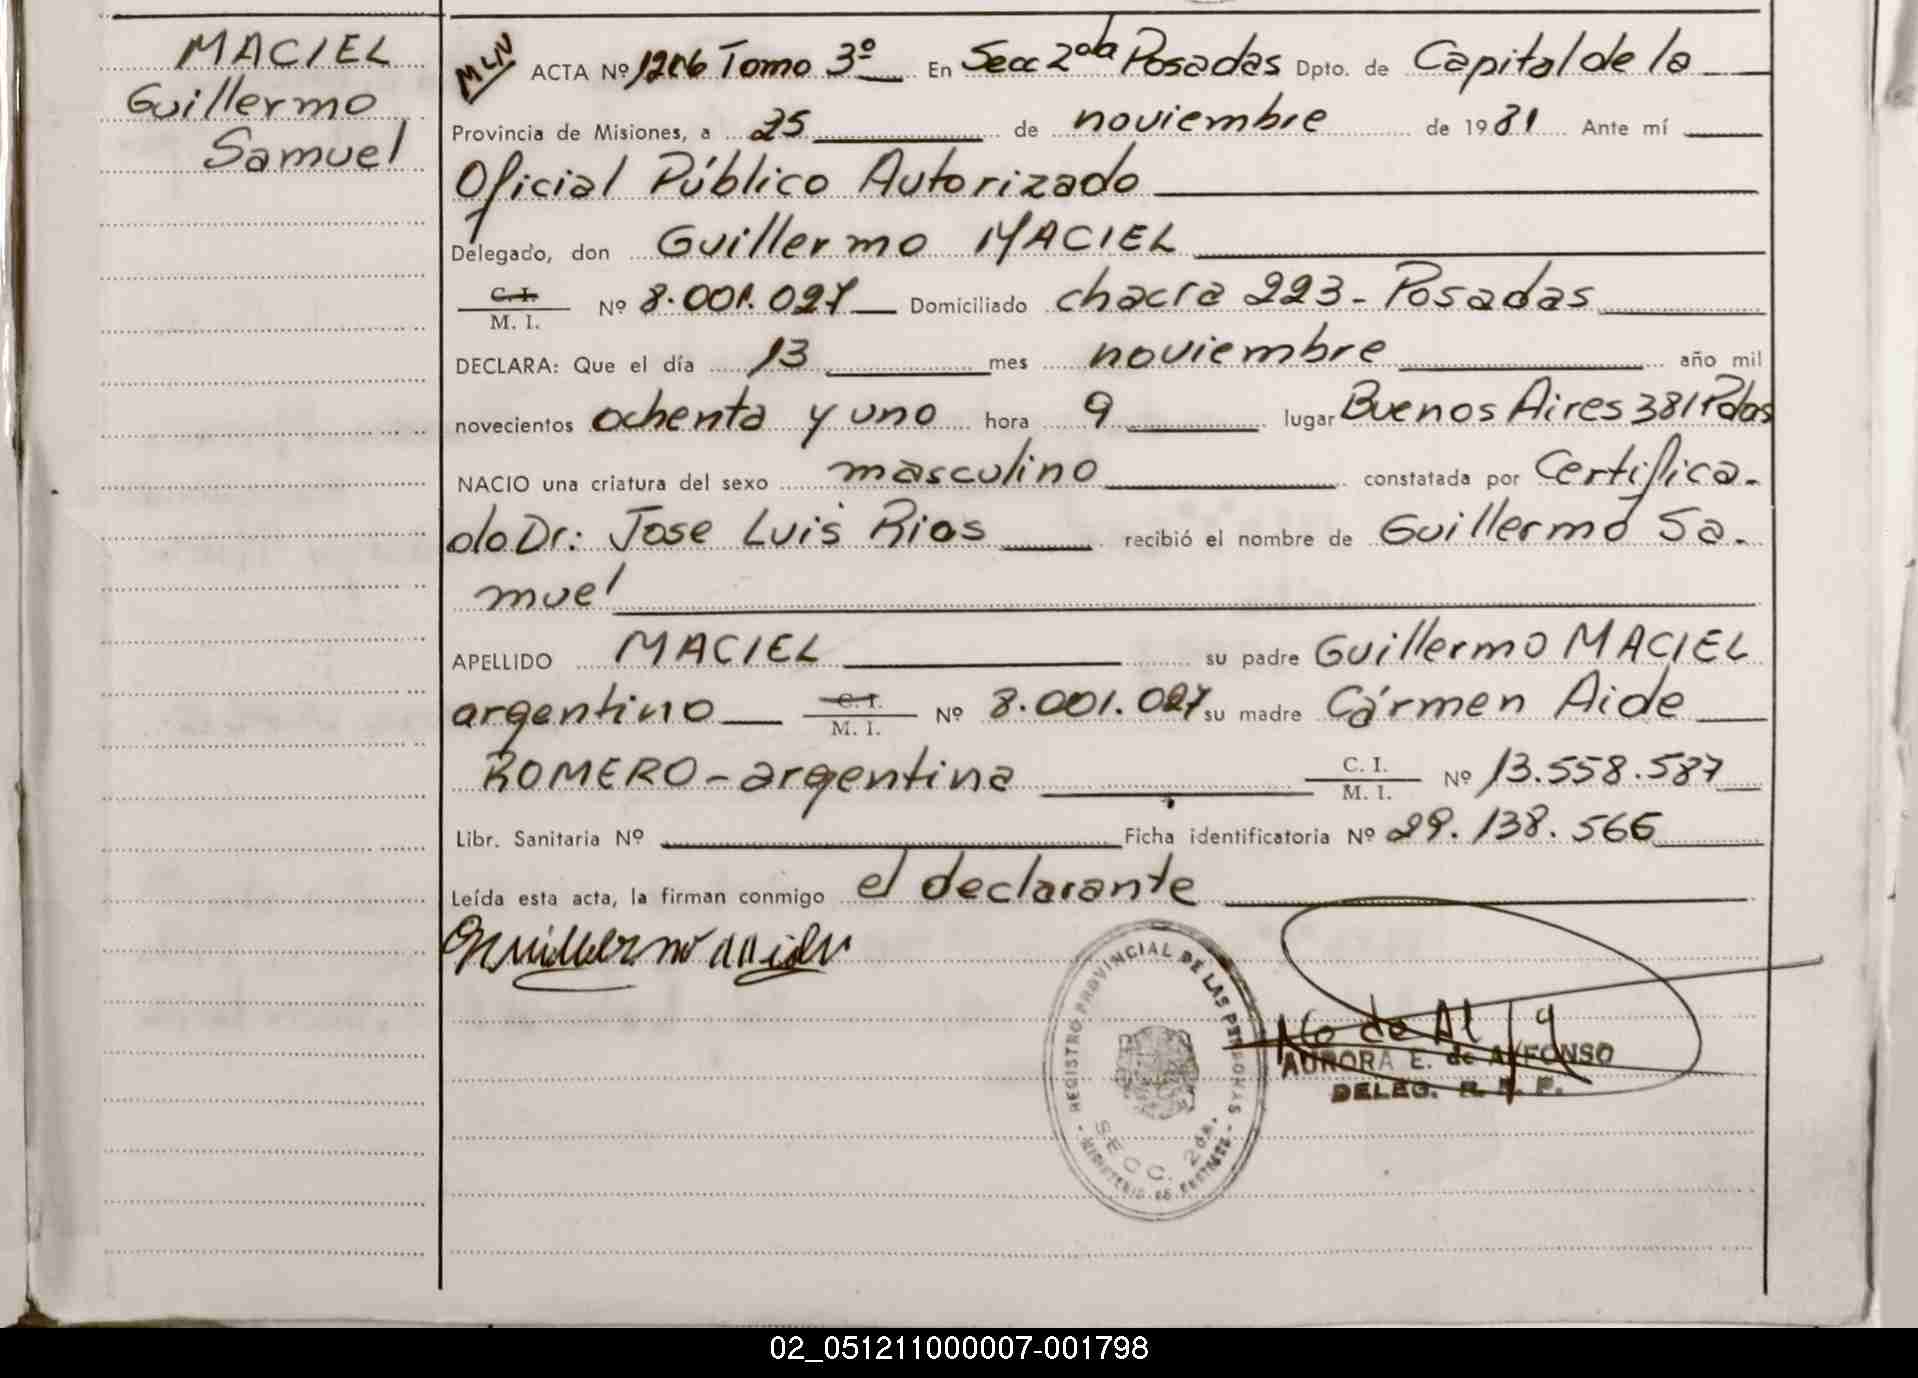 MACIEL
Guillermo
Samuel
MLIV ACTA Nº 1206 Tomo 3º En Secc 2da Posadas Dpto. de Capital de la
Provincia de Misiones, a 25 de noviembre de 1981 Ante mí
Oficial Público Autorizado
Delegado, don Guillermo MACIEL
C. I. / M. I. Nº 8.001.027 Domiciliado chacra 223 - Posadas
DECLARA: Que el día 13 mes noviembre año mil
novecientos ochenta y uno hora 9 lugar Buenos Aires 381 Pdas
NACIO una criatura del sexo masculino constatada por Certifica-
do Dr: Jose Luis Rios recibió el nombre de Guillermo Sa-
muel
APELLIDO MACIEL su padre Guillermo MACIEL
argentino C. I. / M. I. Nº 8.001.027 su madre Cármen Aide
ROMERO - argentina C. I. / M. I. Nº 13.558.587
Libr. Sanitaria Nº Ficha identificatoria Nº 29.138.566
Leída esta acta, la firman conmigo el declarante
REGISTRO PROVINCIAL DE LAS PERSONAS
SECC. 2da.
AURORA E. de ALFONSO
DELEG. R. P. P.
02_051211000007-001798